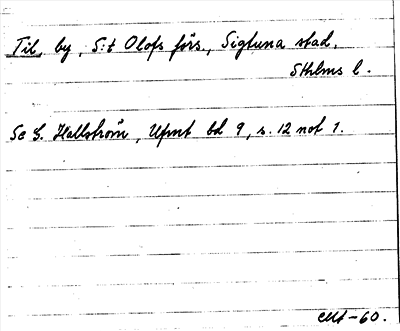 Til, by, S:t Olofs förs., Sigtuna stad,
Sthlms l.
Se G. Hallström, Upmt bd 9, s. 12 not 1.
-60.